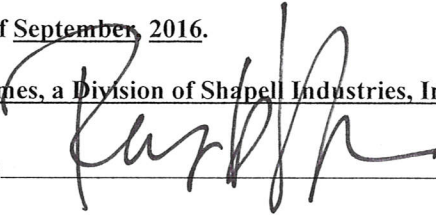 f September, 2016.
mes, a Division of Shapell Industries, In